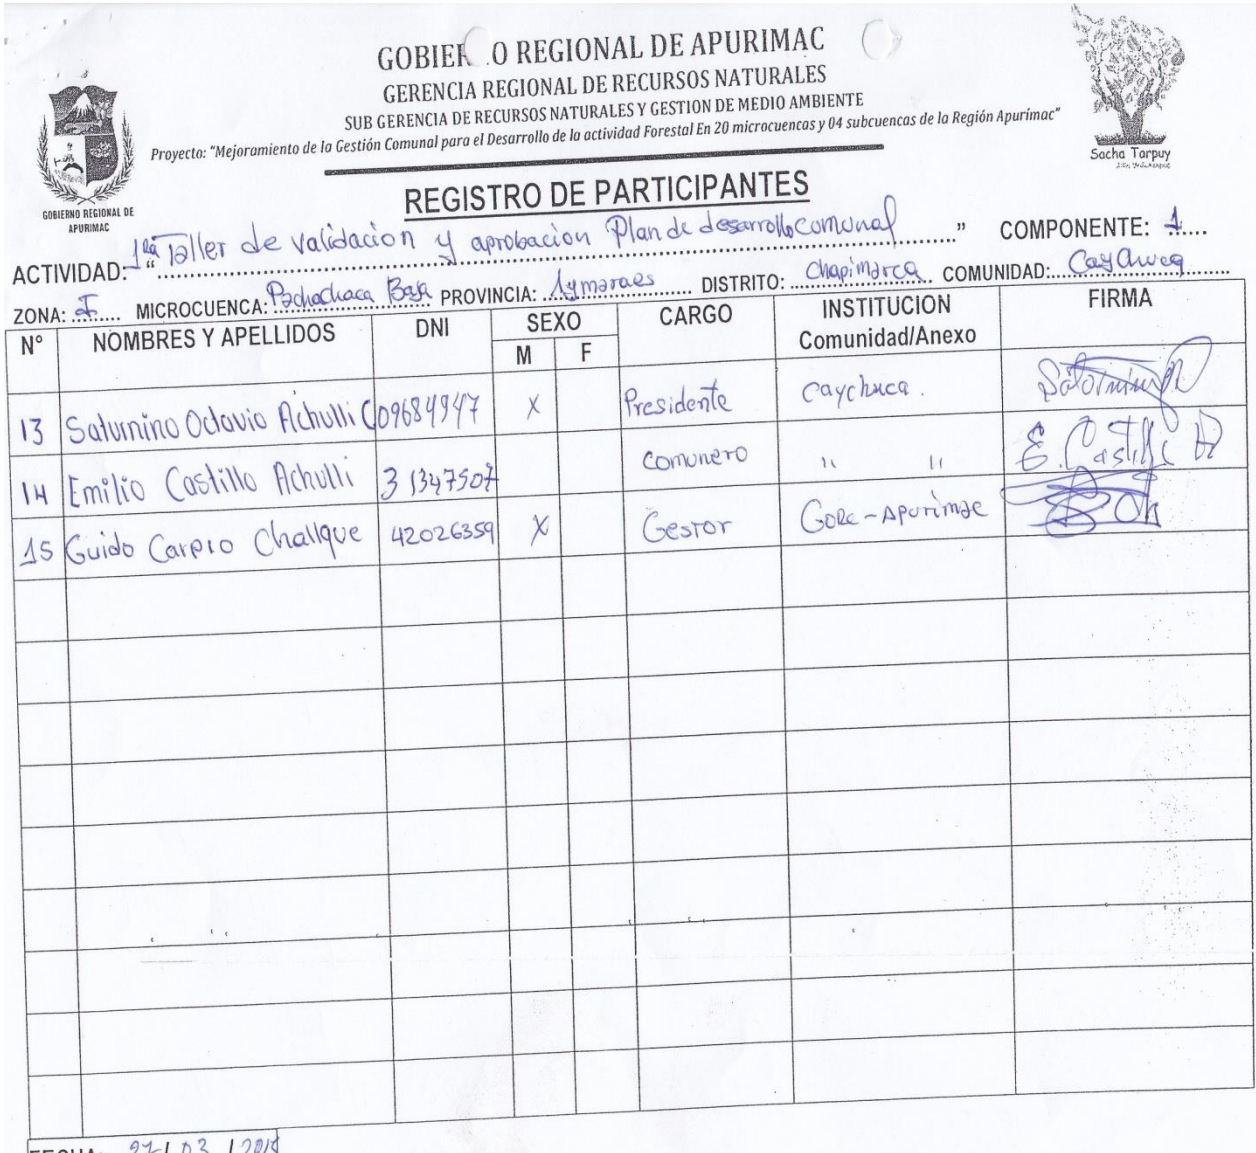 GOBIERNO REGIONAL DE APURIMAC
GERENCIA REGIONAL DE RECURSOS NATURALES
SUB GERENCIA DE RECURSOS NATURALES Y GESTION DE MEDIO AMBIENTE
Proyecto: "Mejoramiento de la Gestión Comunal para el Desarrollo de la actividad Forestal En 20 microcuencas y 04 subcuencas de la Región Apurímac"
GOBIERNO REGIONAL DE
APURIMAC
Sacha Tarpuy
REGISTRO DE PARTICIPANTES
ACTIVIDAD: "1ra Taller de validacion y aprobacion Plan de desarrollo comunal" COMPONENTE: 1
ZONA: I MICROCUENCA: Pachachaca Baja PROVINCIA: Aymaraes DISTRITO: Chapimarca COMUNIDAD: Caychuca
N° NOMBRES Y APELLIDOS DNI SEXO CARGO INSTITUCION FIRMA
M F Comunidad/Anexo
13 Saturnino Octavio Achulli C 09684947 X Presidente Caychuca.
14 Emilio Castillo Achulli 31347507 comunero " " E. Castillo A
15 Guido Carpio Challque 42026359 X Gestor Gore-Apurimac
FECHA: 27/03/2018